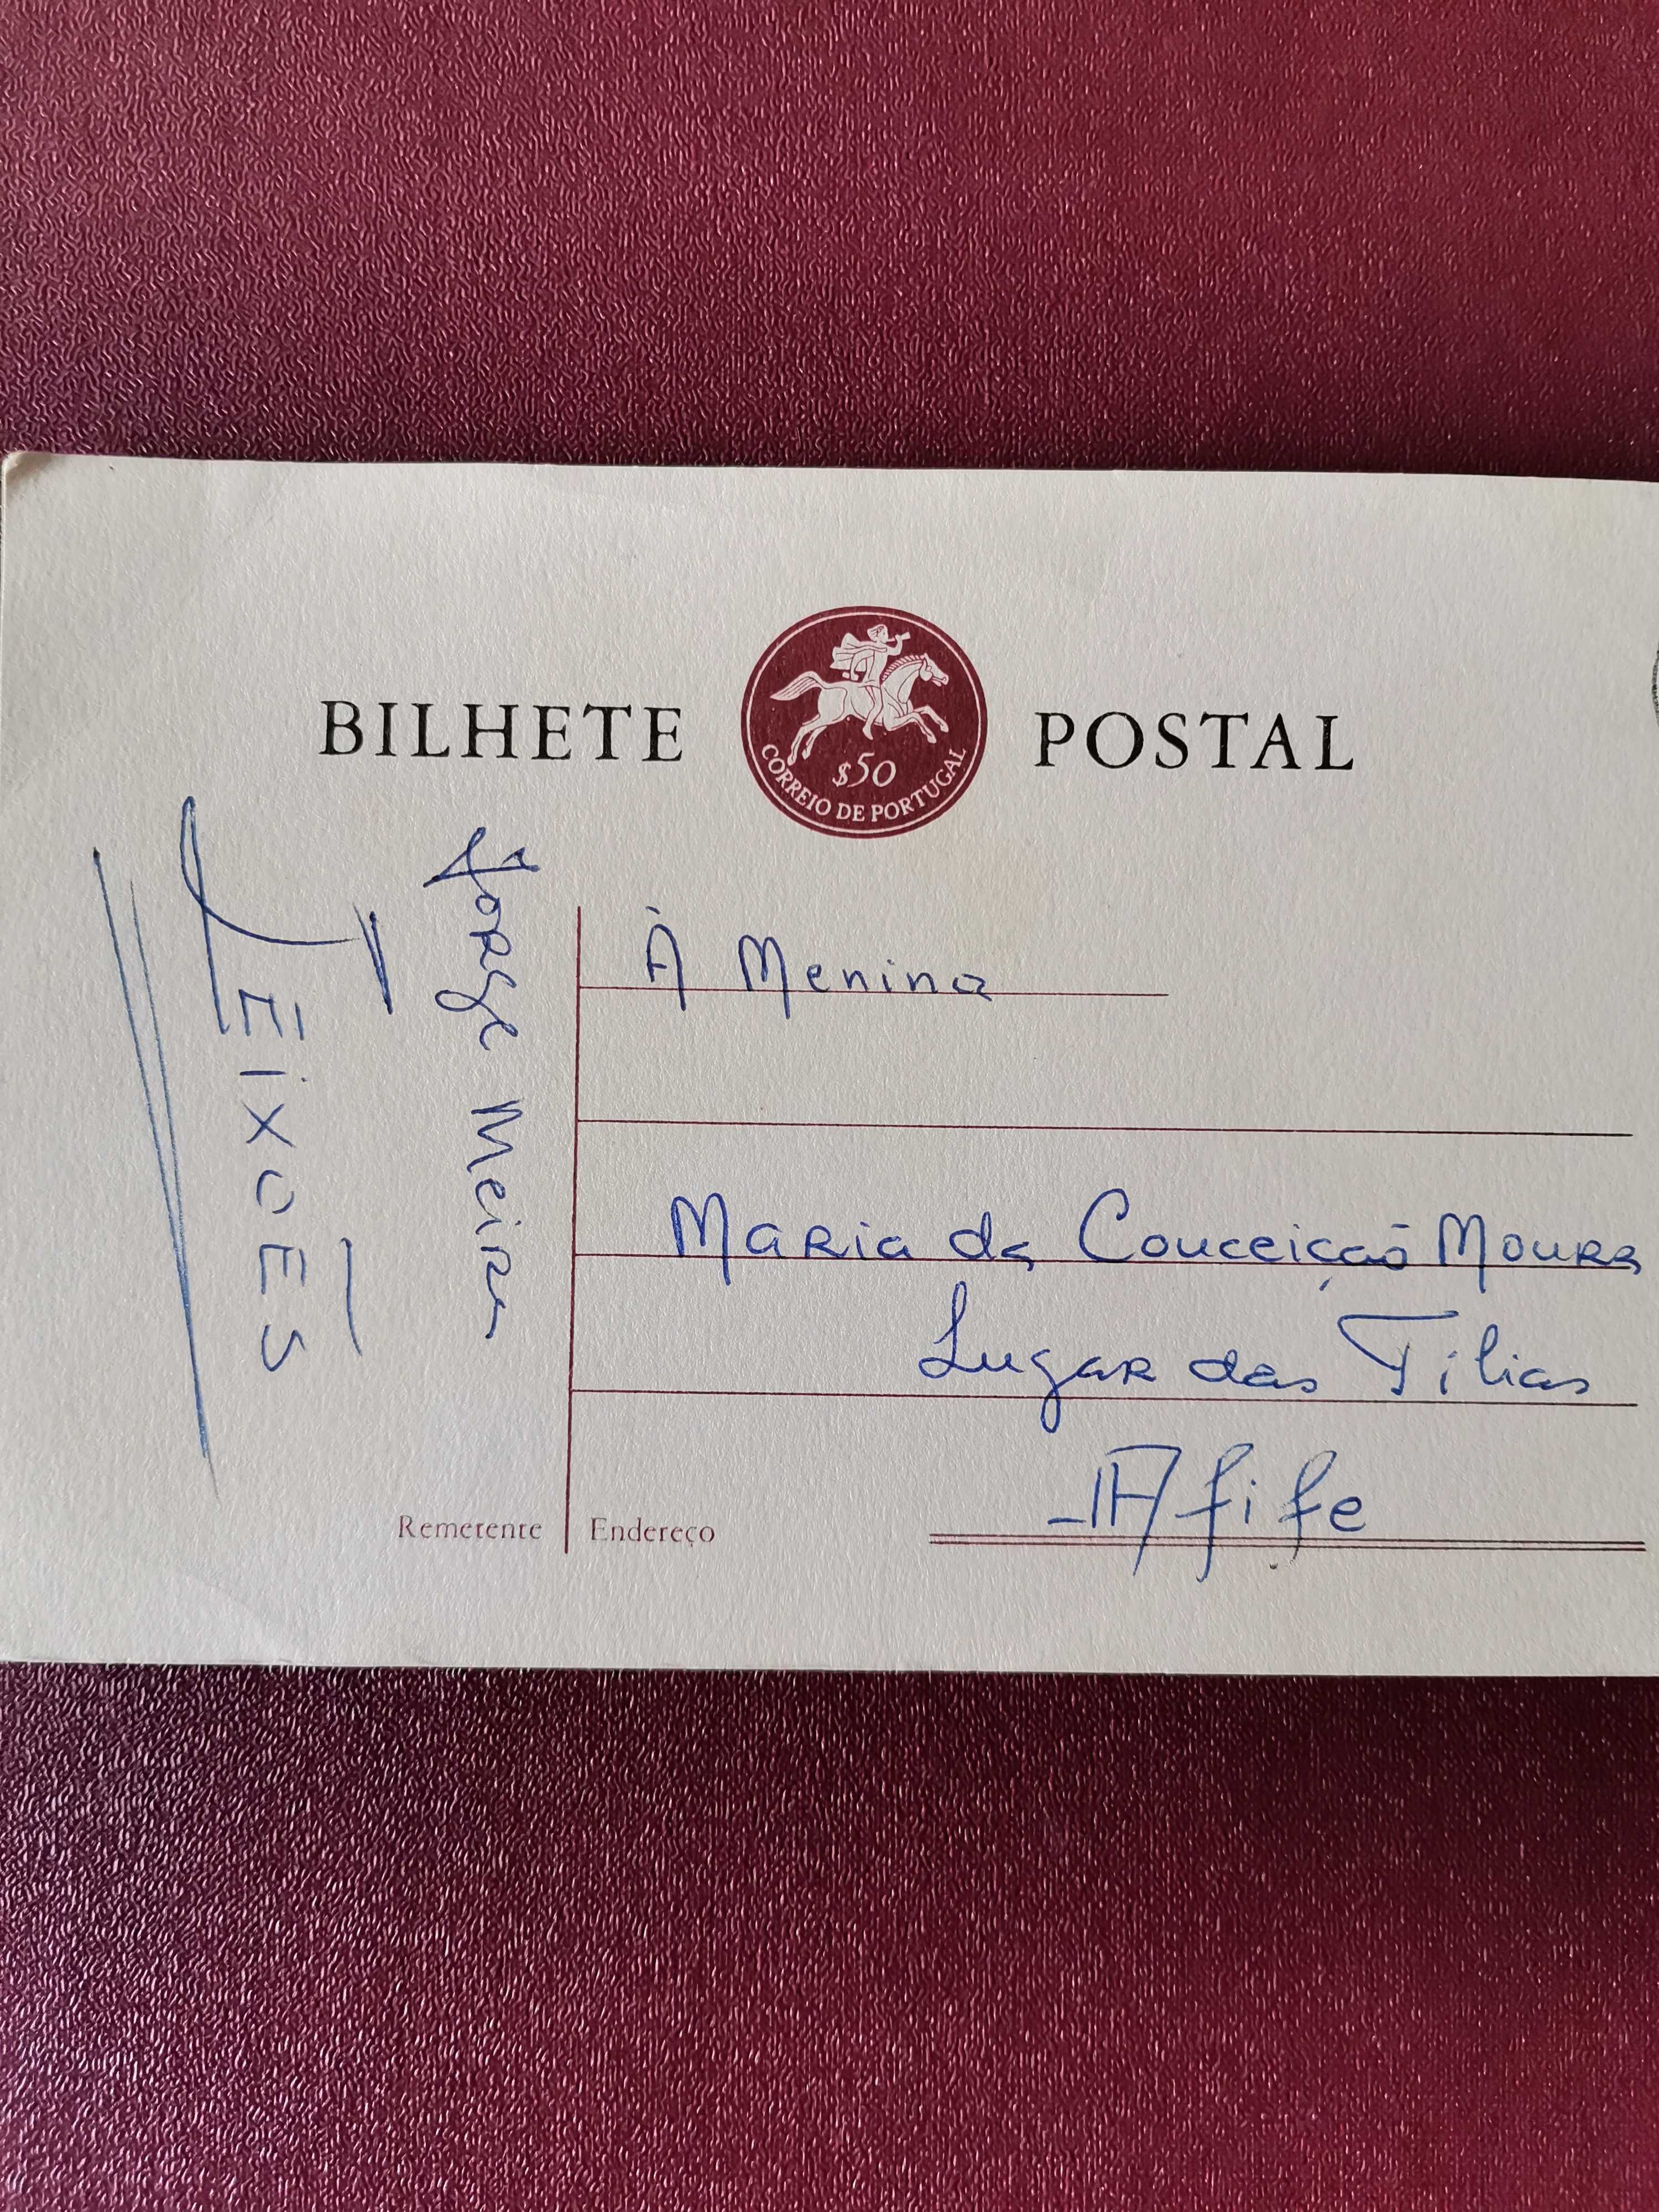 BILHETE POSTAL
$50
CORREIO DE PORTUGAL
Jorge Meira
LEIXOES
Remetente
À Menina
Maria da Conceição Moura
Lugar das Tilias
Afife
Endereço